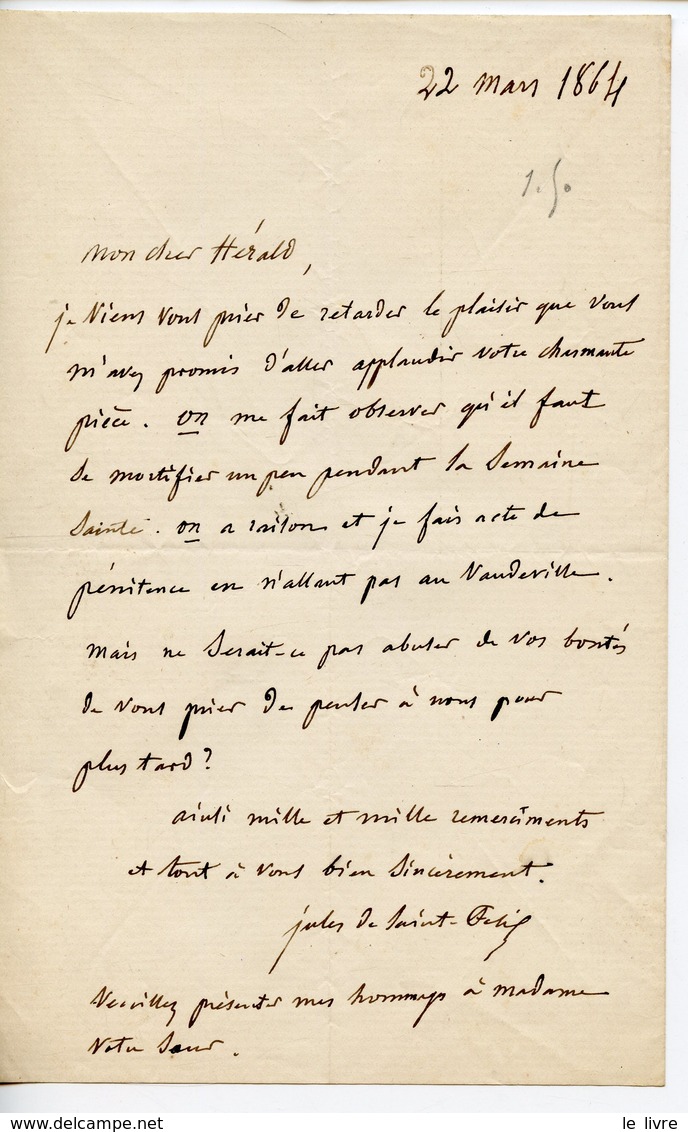 22 mars 1864
1.50
mon cher Hérald,
je viens vous prier de retarder le plaisir que vous
m'avez promis d'aller applaudir votre charmante
pièce. on me fait observer qu'il faut
se mortifier un peu pendant la Semaine
Sainte. on a raison et je fais acte de
pénitence en n'allant pas au Vaudeville.
mais ne serait-ce pas abuser de vos bontés
de vous prier de penser à nous pour
plus tard?
ainsi mille et mille remerciments
et tout à vous bien sincèrement.
jules de Saint-Felix
Veuillez présenter mes hommages à madame
votre Sœur.
le livre